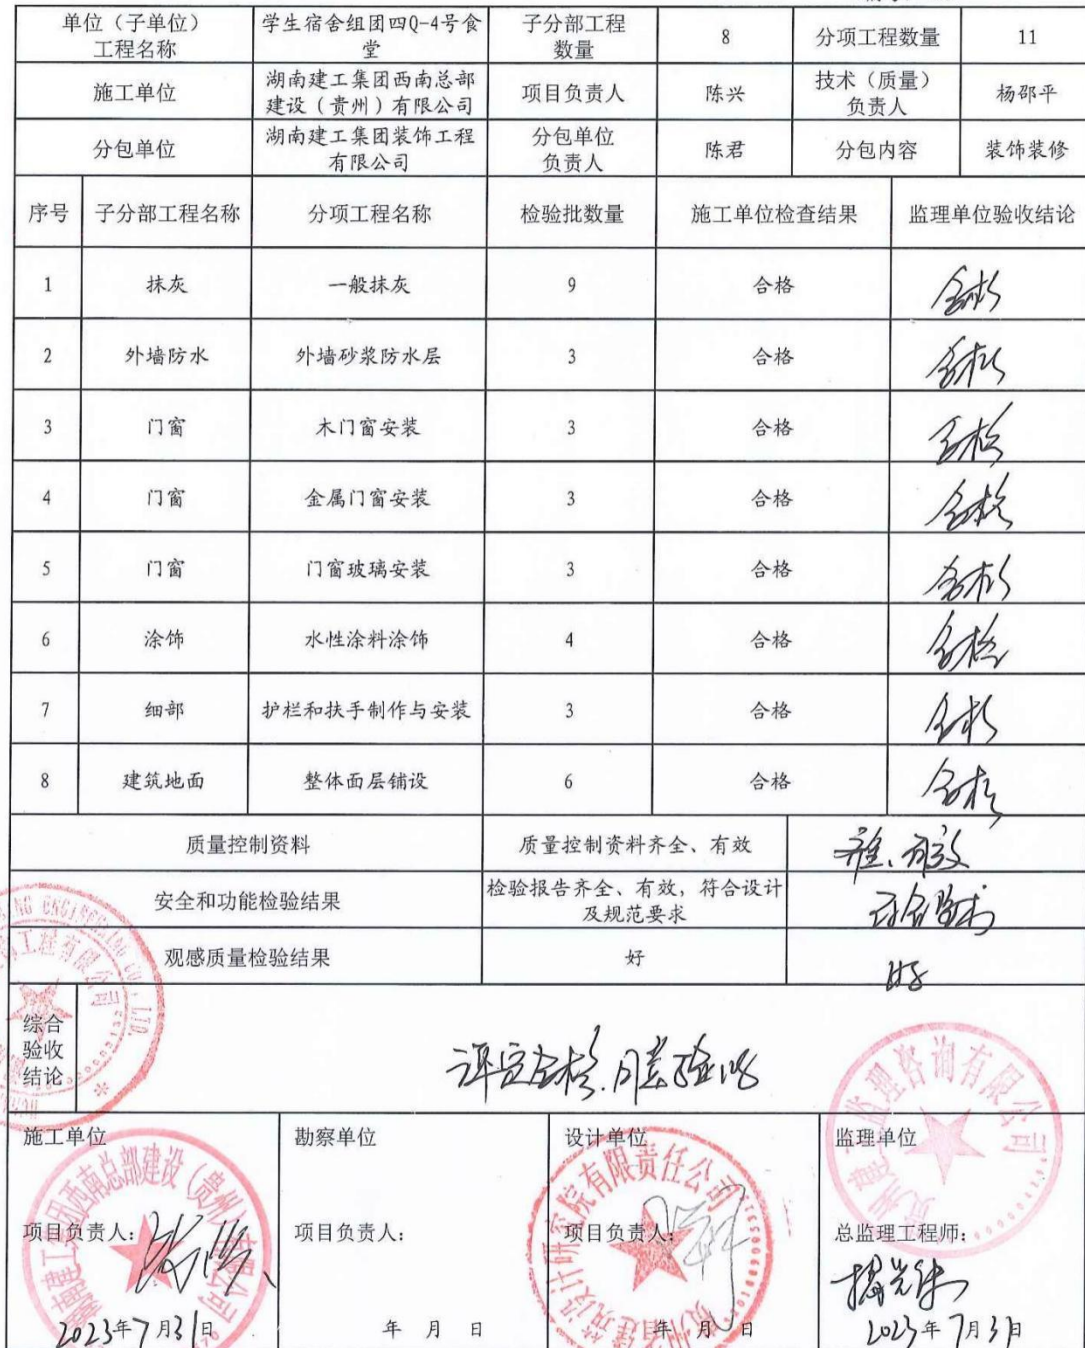 单位（子单位）
工程名称
学生宿舍组团四Q-4号食
堂
子分部工程
数量
8
分项工程数量
11
施工单位
湖南建工集团西南总部
建设（贵州）有限公司
项目负责人
陈兴
技术（质量）
负责人
杨邵平
分包单位
湖南建工集团装饰工程
有限公司
分包单位
负责人
陈君
分包内容
装饰装修
序号 子分部工程名称 分项工程名称 检验批数量 施工单位检查结果 监理单位验收结论
1 抹灰 一般抹灰 9 合格 合格
2 外墙防水 外墙砂浆防水层 3 合格 合格
3 门窗 木门窗安装 3 合格 合格
4 门窗 金属门窗安装 3 合格 合格
5 门窗 门窗玻璃安装 3 合格 合格
6 涂饰 水性涂料涂饰 4 合格 合格
7 细部 护栏和扶手制作与安装 3 合格 合格
8 建筑地面 整体面层铺设 6 合格 合格
质量控制资料 质量控制资料齐全、有效
安全和功能检验结果
检验报告齐全、有效，符合设计
及规范要求
观感质量检验结果 好 好
综合
验收
结论
评定合格.同意验收
施工单位 勘察单位 设计单位 监理单位
项目负责人： 项目负责人： 项目负责人： 总监理工程师：
2023年7月31日 年 月 日 年 月 日 2023年7月31日